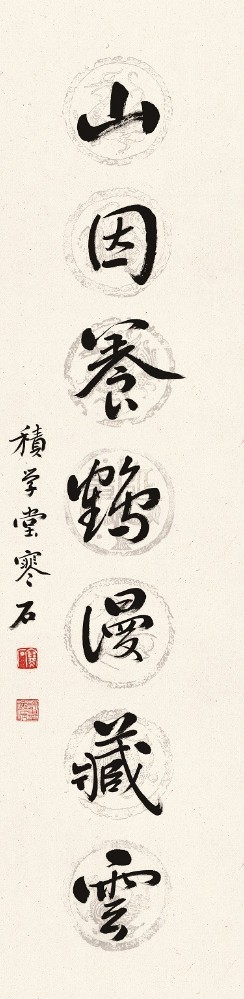 山因養鶴漫藏雲
積学堂寒石